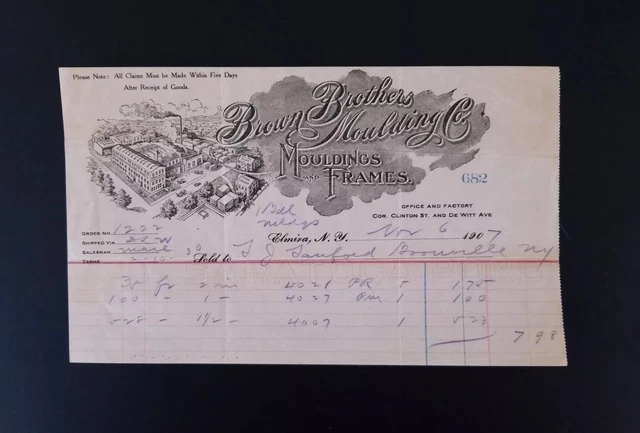 Please Note: All Claims Must be Made Within Five Days
After Receipt of Goods.
Brown Brothers
Moulding Co
Mouldings
and Frames.
682
Office and Factory
Cor. Clinton St. and De Witt Ave
1 Bdl
mldgs
Order No. 1222
Elmira, N. Y. Nov 6 1907
Shipped Via
Salesman
Sold to Sanford Boonville NY
Terms 2-10- 30
35 fr 2 in 4021 PR 5 1 75
100 - 1 - 4027 1 1 00
528 - 1 1/2 - 4007 1 5 23
7 98